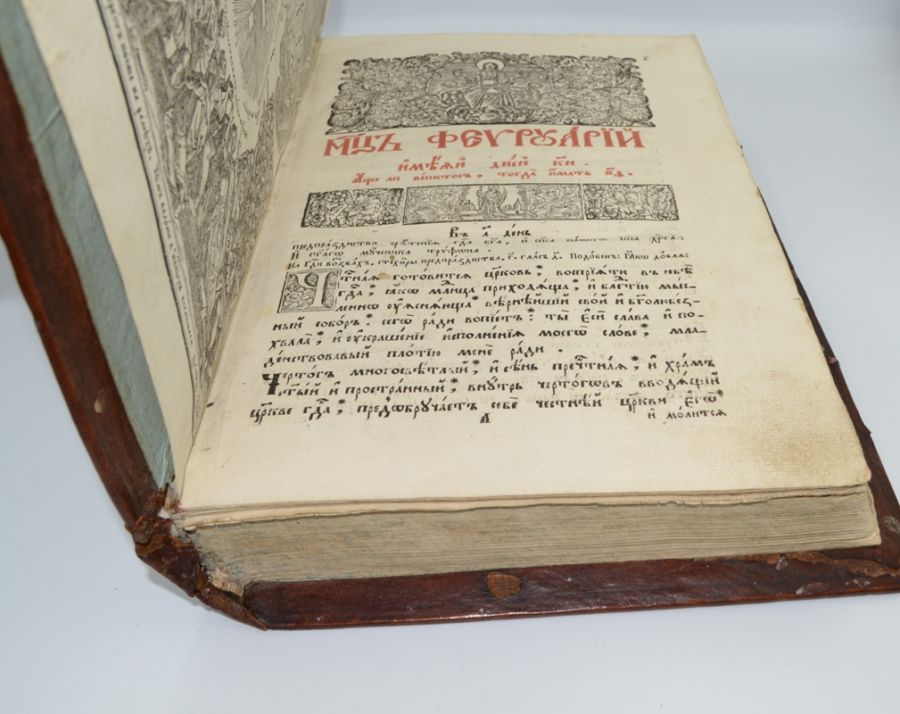 МЦ҃Ъ ФЕѴРꙊА́РІЙ
и҆мѣ́ѧй дні́й к҃и.
А҆́ще ли висико́съ, тогда̀ и҆́мать к҃ѳ.
Въ а҃ де́нь
предпра́зднство срѣ́тенїѧ гдⷭ҇а бг҃а, и҆ сп҃са на́шегѡ і҆и҃са хрⷭ҇та̀.
И҆ ст҃а́гѡ мч҃ника трѵ́фѡна.
На гдⷭ҇и воззва́хъ, стїхи̑ры предпра́зднства, гла́съ а҃. Подо́бенъ: Ꙗ҆́кѡ до́блѧ:
Чⷭ҇тна́ѧ гото́витсѧ цр҃ковь, воспрїѧ́ти въ себѣ̀
гдⷭ҇а, ꙗ҆́кѡ млⷣнца приходѧ́ща, и҆ блгⷣтїю мы́с-
леннѡ ᲂу҆ѧснѧ́юща вѣ́рнѣйшїй сво́й и҆ бг҃олюбе́з-
ный собо́ръ. сегѡ̀ ра́ди вопїе́тъ: ты̀ є҆сѝ сла́ва и҆ по-
хвала̀, и҆ ᲂу҆краше́нїе и҆сполне́нїѧ моегѡ̀ сло́ве, мла-
де́нствовавый пло́тїю менє̀ ра́ди.
Черто́гъ многосвѣ́тлый, и҆ сѣ́нь пречⷭ҇тна́ѧ, и҆ хра́мъ
ст҃ы́й и҆ простра́нный, внꙋ́трь черто́гѡвъ вводѧ́щїй
цр҃кве гдⷭ҇а, предѡбрꙋча́етъ себѐ честнѣ́й цр҃кви є҆гѡ̀
и҆ мо́литсѧ